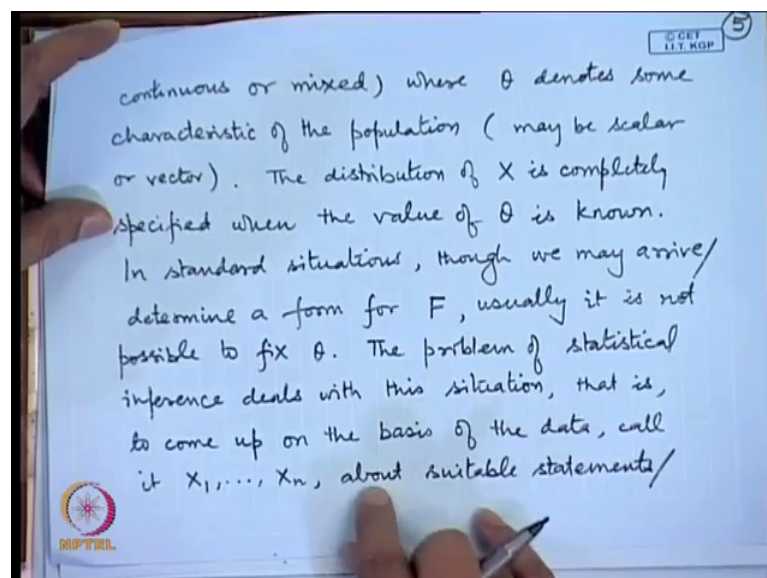 © CET
I.I.T. KGP
5
continuous or mixed) where θ denotes some
characteristic of the population ( may be scalar
or vector). The distribution of X is completely
specified when the value of θ is known.
In standard situations, though we may arrive/
determine a form for F, usually it is not
possible to fix θ. The problem of statistical
inference deals with this situation, that is,
to come up on the basis of the data, call
it X₁, ..., Xₙ, about suitable statements/
NPTEL